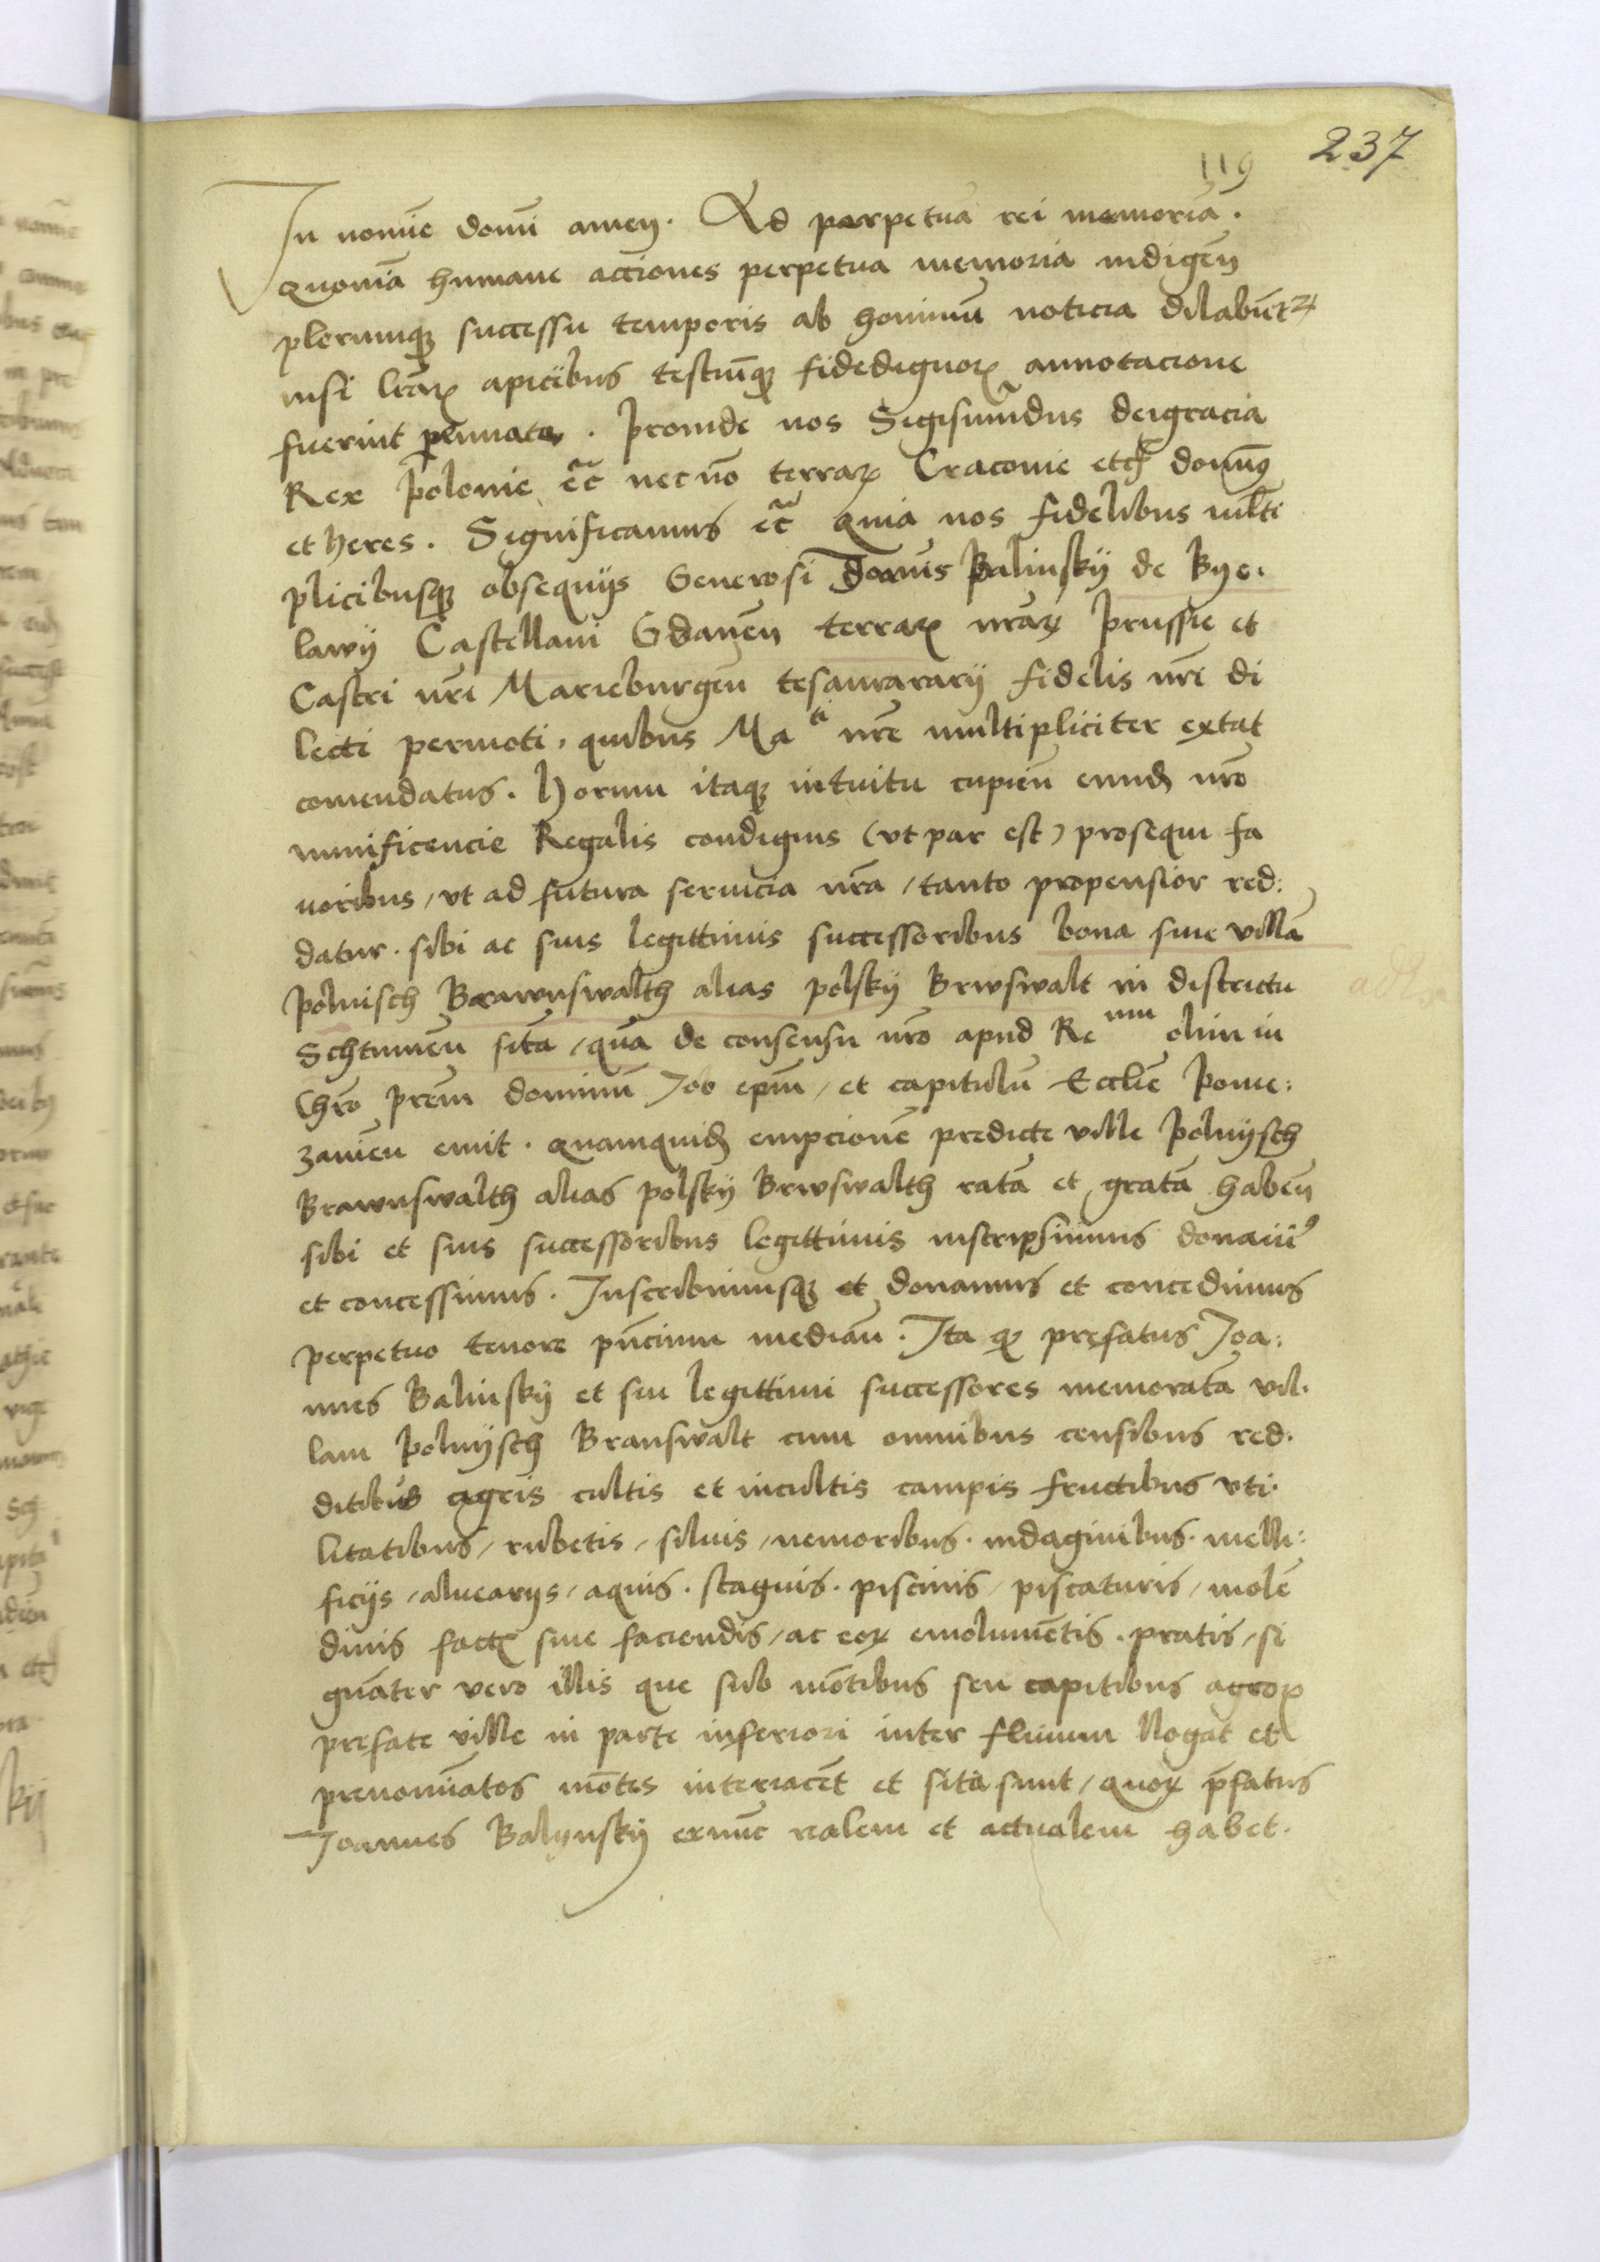 237
119
In nomie domi amen. Ad perpetua rei memoria.
Quonia humane acciones perpetua memoria indigen
plerumq successu temporis ab hominu noticia dilabunt
nisi lrar apicibus testiuq fidedignor annotacione
fuerint perennate. Proinde nos Sigismudus dei gracia
Rex Polonie etc necno terrar Cracovie etc domin9
et heres. Significamus etc quia nos fidelibus multi
plicibusq obsequijs Generosi Balinskij de Bye.
lawij Castellani Gdanen terrar nrar Prussie et
Castri nri Marieburgen tesaurararij fidelis nri di
lecti permoti, quibus Ma ti nre multipliciter extat
comendatus. Horum itaq intuitu cupien eund nro
munificencie Regalis condignis (ut par est) prosequi fa
uoribus / vt ad futura seruicia nra / tanto propensior red:
datur. sibi ac suis legittimis successoribus bona siue villa
Polnisch Brawnswalth alias polskij Brwswalt in districtu
Schtumen sita / qua de consensu nro apud Re mu olim in
Chro prem dominu Job epm / et capitulu Ecclie Pome:
zanien emit. quamquid empcione predicte ville Polnijsch
Brawnswalth alias polskij Brwswalth rata et grata haben
sibi et suis successoribus legittimis inscripsimus donauim9
et concessimus. Inscribimusq et donamus et concedimus
perpetuo tenore pncium median. Ita q prefatus Joa:
nnes Balinskij et sui legittimi successores memorata vil.
lam Polnijsch Branswalt cum omnibus censibus red.
ditibus agris cultis et incultis campis fructibus vti.
litatibus / rubetis / siluis / nemoribus. indaginibus. melli:
ficijs / aluearijs / aquis. stagnis. piscinis / piscaturis / molen
dinis fact siue faciendis / ac eor emolumetis. pratis / si
gnater vero illis que sub motibus seu capitibus agror
prefate ville in parte inferiori inter fluuium Nogat et
prenominatos motes interiacet et sita sunt / quor pfatus
Joannes Balijnskij exnunc realem et actualem habet.